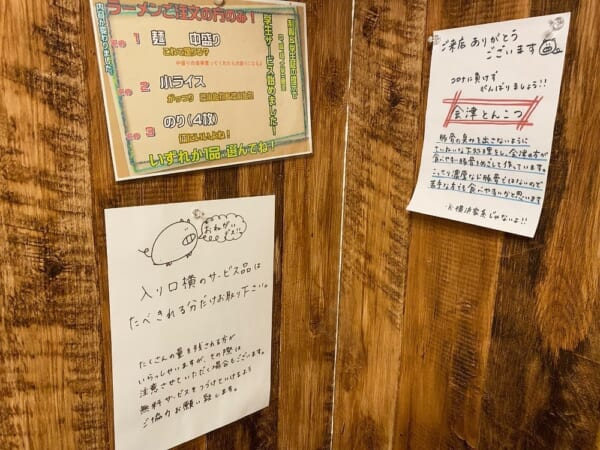 ラーメンご注文の方のみ!
その1 麺 中盛り
これで足りる?
その2 小ライス
がっつり
その3 のり(4枚)
いずれか1品選んでね!
学生サービス始めました!
内容が変わりました
おねがい
デス!!
入り口横のサービス品は
たべきれる分だけお取り下さい。
たくさんの量を残される方が
いらっしゃいますが、その際は
注意させていただく場合もございます。
無料サービスをつづけていけるよう
ご協力お願い致します。
ご来店ありがとう
ございます
コロナに負けず
がんばりましょう!!
会津とんこつ
豚骨の臭みを出さないように
ていねいな下処理をし、会津の方が
食べやすい豚骨をめざして作っています。
こってり濃厚など豚骨ではないので
苦手な方でも食べやすいかと思います
※横浜家系じゃないよ!!